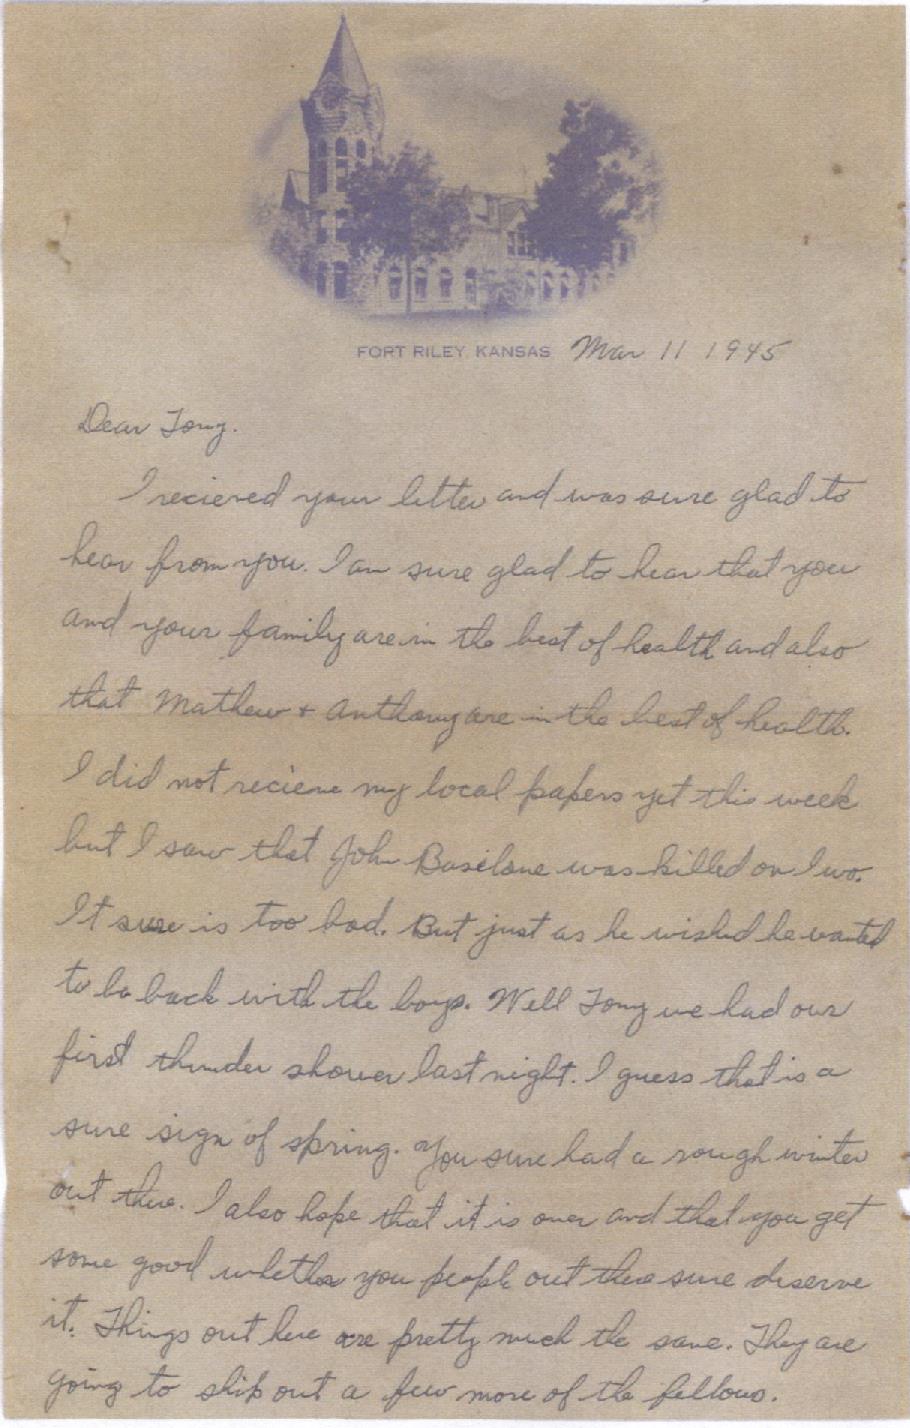 FORT RILEY, KANSAS Mar 11 1945
Dear Tony.
I recieved your letter and was sure glad to
hear from you. I am sure glad to hear that you
and your family are in the best of health and also
that Mathew + Anthony are in the best of health.
I did not recieve my local papers yet this week
but I saw that John Basilone was killed on Iwo.
It sure is too bad. But just as he wished he wanted
to be back with the boys. Well Tony we had our
first thunder shower last night. I guess that is a
sure sign of spring. You sure had a rough winter
out there. I also hope that it is over and that you get
some good whether you people out there sure deserve
it. Things out here are pretty much the same. They are
going to ship out a few more of the fellows.